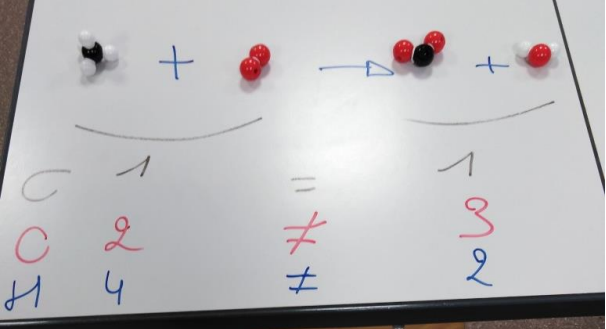 + → +
C 1 = 1
O 2 ≠ 3
H 4 ≠ 2